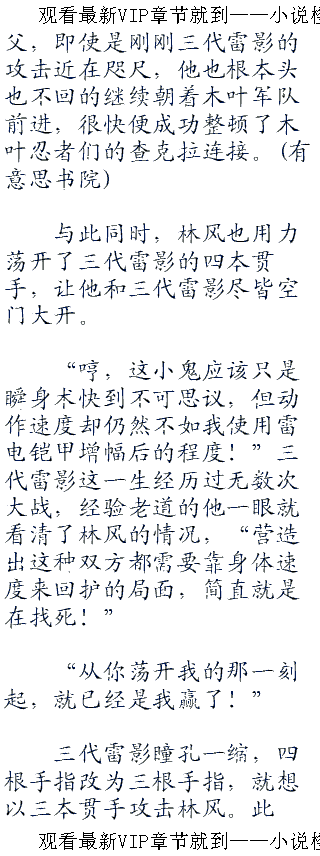 观看最新VIP章节就到——小说
父，即使是刚刚三代雷影的
攻击近在咫尺，他也根本头
也不回的继续朝着木叶军队
前进，很快便成功整顿了木
叶忍者们的查克拉连接。（有
意思书院）
与此同时，林风也用力
荡开了三代雷影的四本贯
手，让他和三代雷影尽皆空
门大开。
“哼，这小鬼应该只是
瞬身术快到不可思议，但动
作速度却仍然不如我使用雷
电铠甲增幅后的程度！”三
代雷影这一生经历过无数次
大战，经验老道的他一眼就
看清了林风的情况，“营造
出这种双方都需要靠身体速
度来回护的局面，简直就是
在找死！”
“从你荡开我的那一刻
起，就已经是我赢了！”
三代雷影瞳孔一缩，四
根手指改为三根手指，就想
以三本贯手攻击林风。此
观看最新VIP章节就到——小说